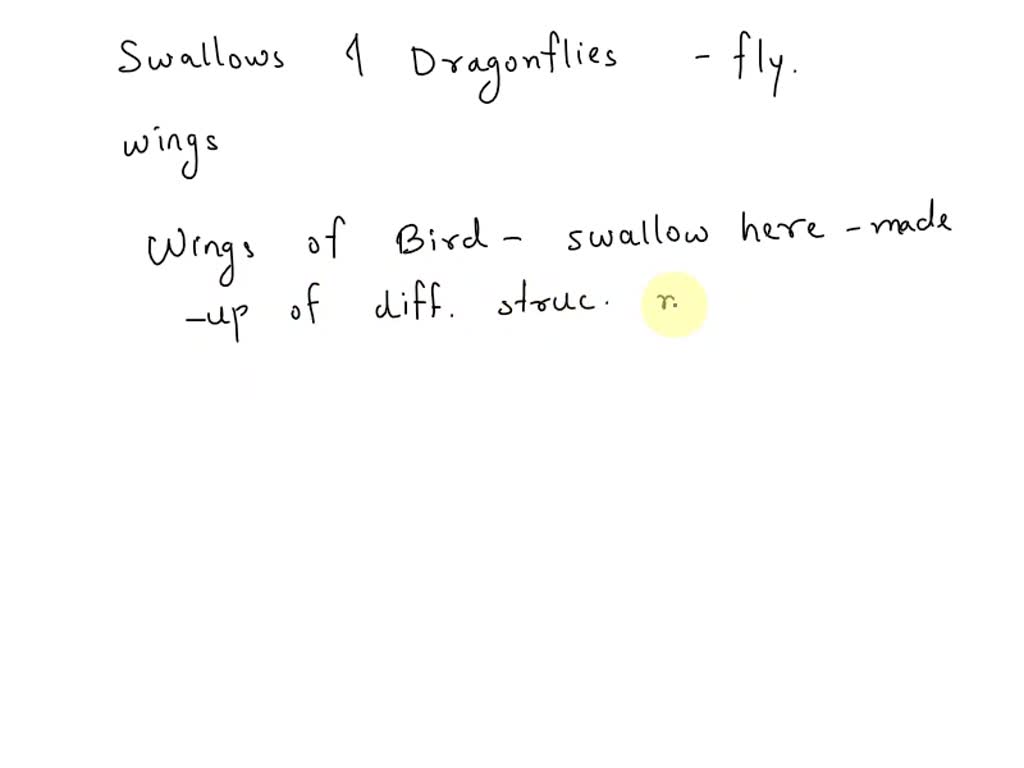 Swallows & Dragonflies - fly.
wings
Wings of Bird - swallow here - made
-up of diff. struc.